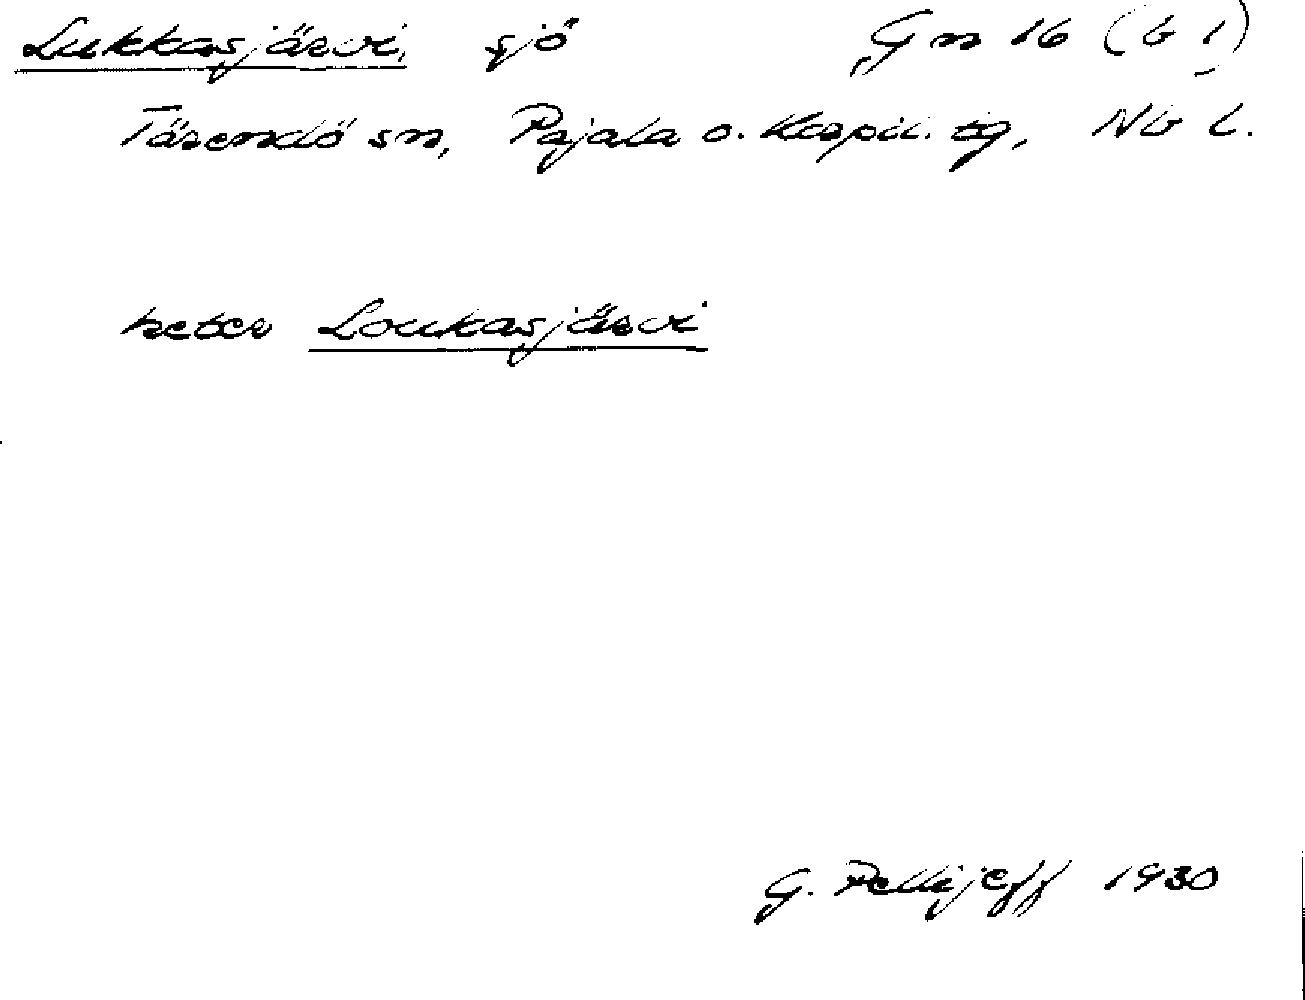 Lukkasjärvi, sjö Gn 16 (b 1)
Tärendö sn, Pajala o. Korpil. tg, Nb l.
heter Loukasjärvi
G. Pellijeff 1930